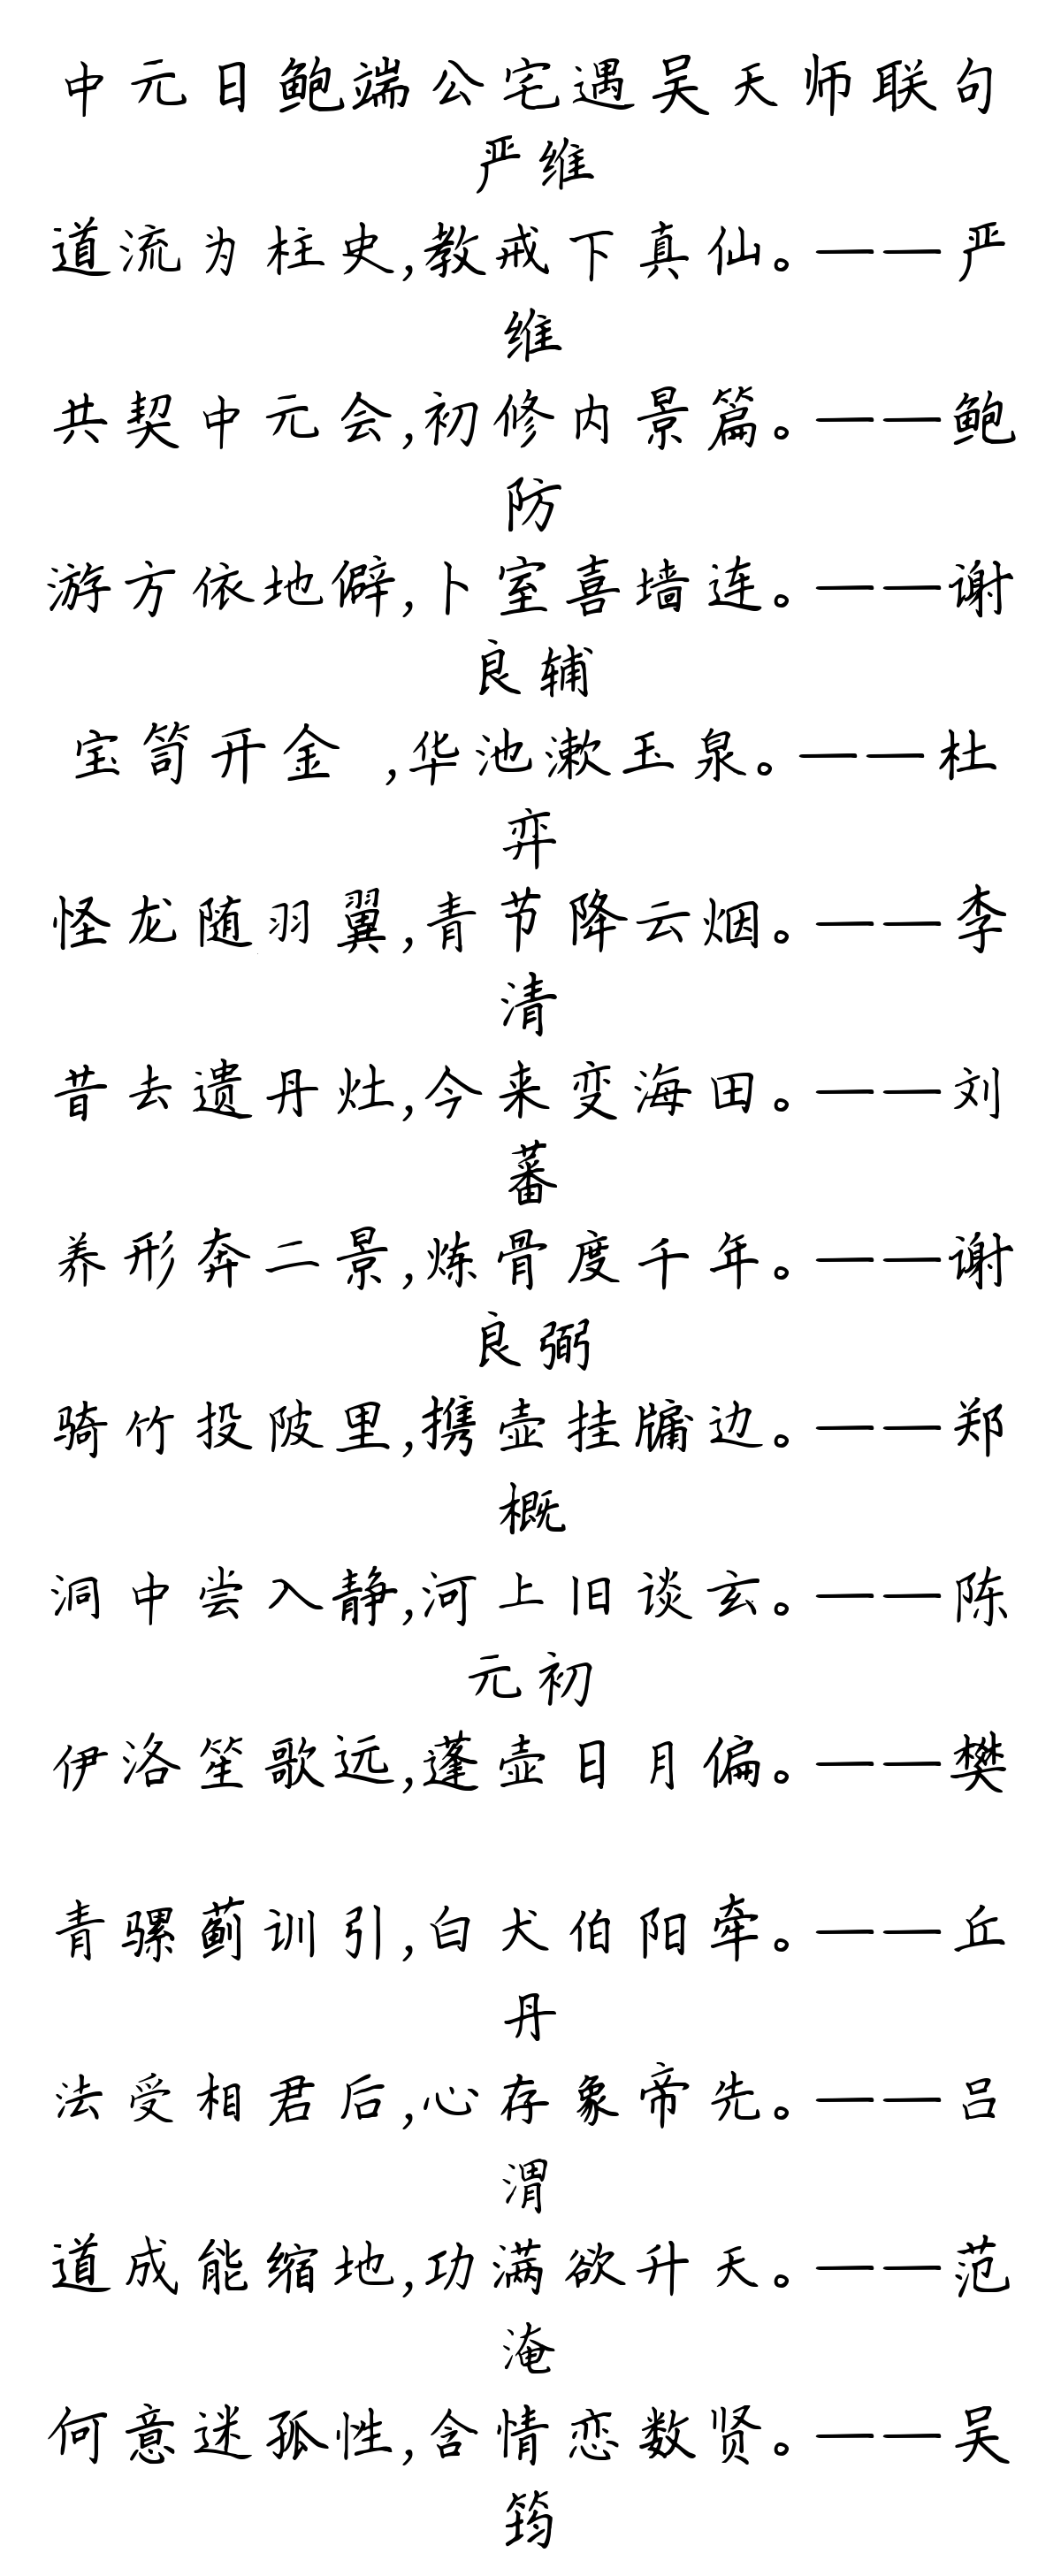 中元日鲍端公宅遇吴天师联句
严维
道流为柱史,教戒下真仙。——严
维
共契中元会,初修内景篇。——鲍
防
游方依地僻,卜室喜墙连。——谢
良辅
宝笥开金 ,华池漱玉泉。——杜
弈
怪龙随羽翼,青节降云烟。——李
清
昔去遗丹灶,今来变海田。——刘
蕃
养形奔二景,炼骨度千年。——谢
良弼
骑竹投陂里,携壶挂牗边。——郑
概
洞中尝入静,河上旧谈玄。——陈
元初
伊洛笙歌远,蓬壶日月偏。——樊
青骡蓟训引,白犬伯阳牵。——丘
丹
法受相君后,心存象帝先。——吕
渭
道成能缩地,功满欲升天。——范
淹
何意迷孤性,含情恋数贤。——吴
筠